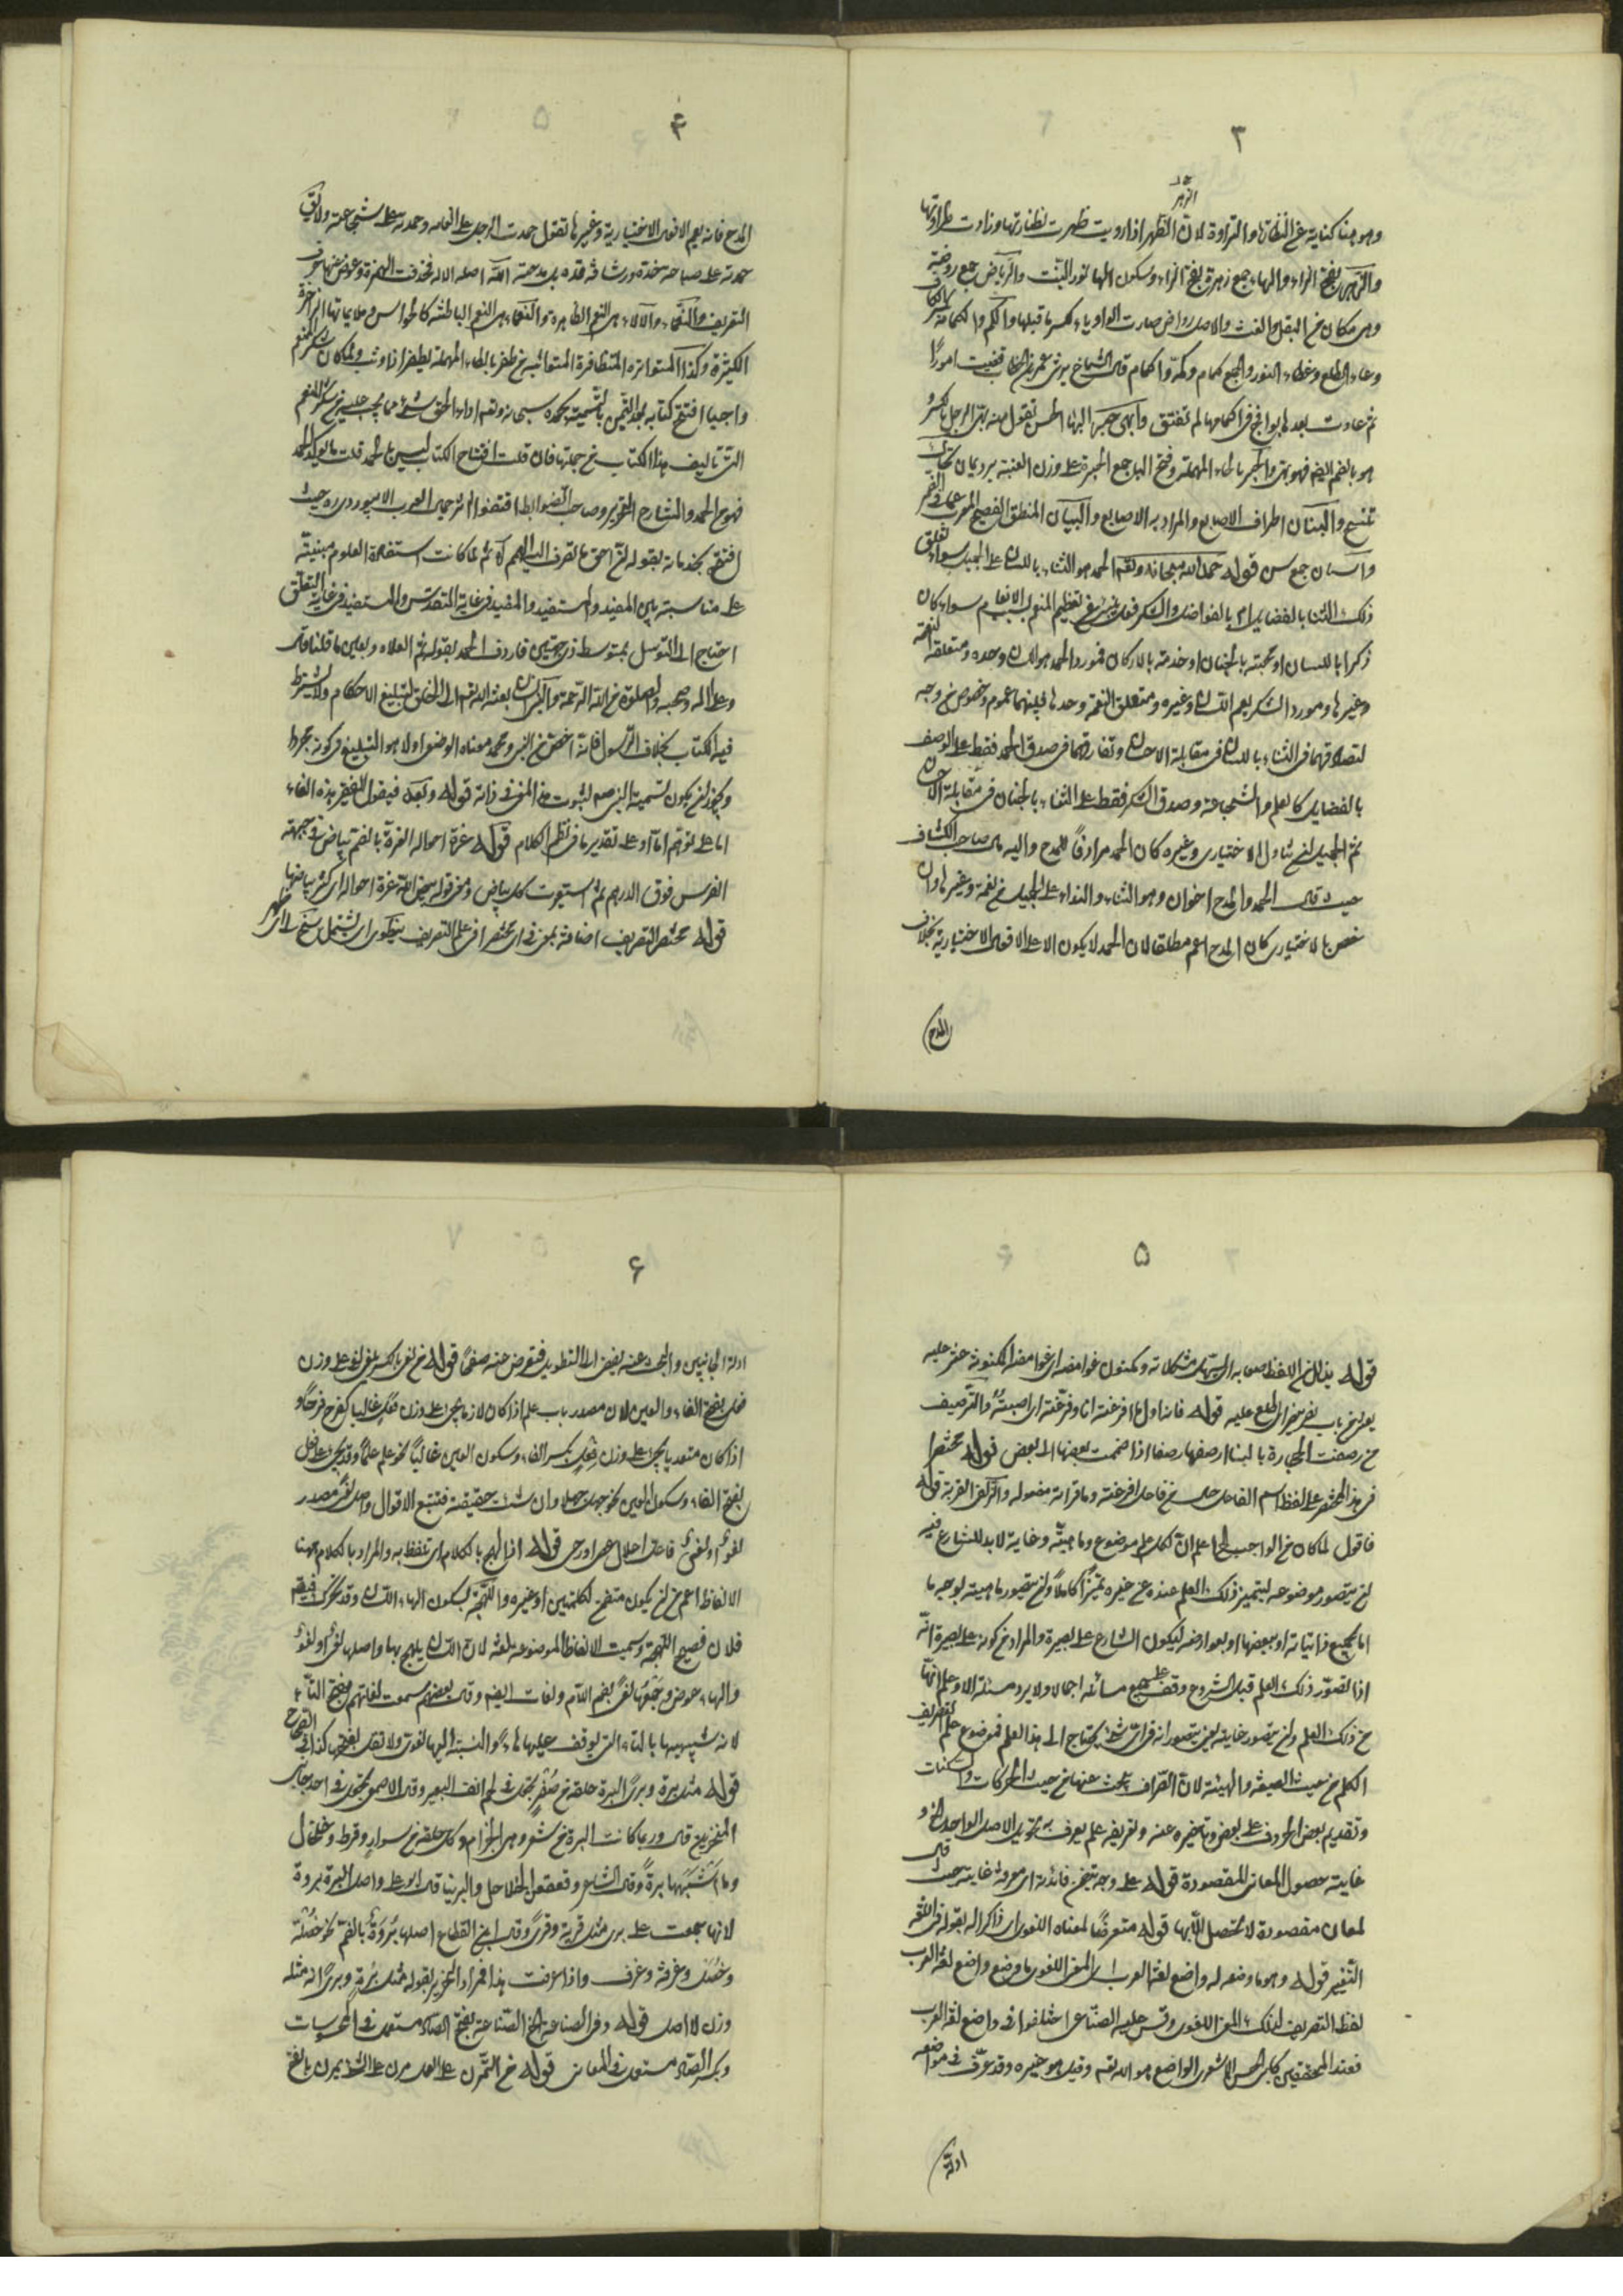 ٣
الزهر
وهو هنا كناية عن النظارة والتراوة لان الزهر اذا رويت ظهرت نظارتها وزادت طراوتها
والزهر بفتح الزاء والهاء جمع زهرة بفتح الزاء وسكون الهاء نور النبت والرياض جمع روضة
وهى مكان من البقل والعشب والاصل رواض صارت الواو ياء لكسر ما قبلها والكم والكمامة بكسر الكاف
وعاء الطلع وغطاء النور والجمع كمام واكمة واكمام قال الشماخ يرثى عمر بن الخطاب قضيت امورا
ثم غادرت بعدها بوائج فى اكمامها لم تفتق وابهى حبر البهاء الحسن تقول منه بهى الرجل بالكسر و
هو بالضم ايضا فهو بهى والحبر بالحاء المهملة وفتح الباء جمع الحبرة على وزن العنبة برد يمان
تنسج والبنان اطراف الاصابع والمراد به الاصابع والبيان المنطق الفصيح المعرب عما فى الضمير
واسنان جمع سن قوله حمد الله سبحانه وتعالى الحمد هو الثناء باللسان على الجميل سواء تعلق
ذلك الثناء بالفضايل ام بالفواضل والشكر فعل ينبئ عن تعظيم المنعم بسبب الانعام سواء كان
ذكرا باللسان او محبة بالجنان او خدمة بالاركان فمورد الحمد هو اللسان وحده ومتعلقه النعمة
وغيرها ومورد الشكر يعم اللسان وغيره ومتعلق النعمة وحدها فبينهما عموم وخصوص من وجه
لتصادقهما فى الثناء باللسان فى مقابلة الاحسان وتفارقهما فى صدق الحمد فقط على الوصف
بالفضايل كالعلم والشجاعة وصدق الشكر فقط على الثناء بالجنان فى مقابلة الاحسان
ثم الجميل ان تناول الاختيارى وغيره كان الحمد مرادفا للمدح واليه مال صاحب الكشاف
حيث قال الحمد والمدح اخوان وهو الثناء والنداء على الجميل من نعمة وغيرها وان
خص بالاختيارى كان المدح اعم مطلقا لان الحمد لا يكون الا على الافعال الاختيارية بخلاف
المدح
۴
المدح فانه يعم الافعال الاختيارية وغيرها تقول حمدت الرجل على انعامه وحمدته على شجاعته ولا تقول
حمدته على صباحة خده ورشاقة قده بل مدحته الله اصله الاله فحذفت الهمزة وعوض عنها حرف
التعريف والنعماء والآلاء هى النعم الظاهرة والنعماء هى النعم الباطنة كالحواس وملايماتها
الكثيرة وكذا المتواترة المتظافرة المتعاقبة من ظفر بالظاء المهملة يطفر اذا وثب ولما كان شكر المنعم
واجبا افتتح كتابه بعد التيمن بالتسمية بحمده سبحانه وتعالى اداء لحق شئ مما يجب عليه من شكر النعم
التى تاليف هذا الكتاب من جملتها فان قلت افتتاح الكتاب ليس بالحمد قلت
فهو من الحمد والشارح التحرير وصاحب الضوابط اقتفوا اثر
افتتح بقوله ثم لما كانت استفاضة العلوم مبنية
على مناسبة بين المفيد والمستفيد والمفيد فى غاية التقدس والمستفيد فى غاية التعلق
احتاج الى التوسل بمتوسط ذى جهتين فاردف الحمد بقوله ثم الصلاة وبعين ما قلنا قال
وعلى اله وصحبه والصلوة من الله الرحمة والنبى انسان بعثه الله تعالى الى الخلق لتبليغ الاحكام ولا يشترط
فيه الكتاب بخلاف الرسول فانه اخص من النبى ومحمد معناه الوضعى اولا هو البليغ فى كونه محمودا
ويجوز ان يكون تسمية النبى صلعم لثبوت هذا المعنى فى ذاته قوله وبعد فيقول الفقير هذه الفاء
اما على توهم اما او على تقديرها فى نظم الكلام قوله غرة احواله الغرة بالضم بياض فى جبهة
الفرس فوق الدرهم ثم استعيرت لكل بياض ومعنى قوله بيض الله غرة احواله اى كثر بياضها
قوله مختصر التصريف اضافته بمعنى فى اى مختصر فى علم التصريف ينطوى اى يشتمل
۵
قوله يذلل من اللفظ صعابه اى يسهل مشكلاته ومكنون غوامضه اى غوامضه المكنونة عثر عليه
يعثر من باب نصر ينصر اى اطلع عليه قوله فانها اول ما افرغته انا وفرغته اى اصبته والترصيف
من رصفت الحجارة بالبناء ارصفها رصفا اذا ضممت بعضها الى بعض قوله مختصرا
فى هذا المختصر على لفظ اسم الفاعل حال من فاعل افرغته وما قراته مفعوله والزلفى القربة قوله
فاقول لما كان من الواجب الخ اعلم ان لكل علم موضوع وماهية وغاية لا بد للشارع فيه
ان يتصور موضوعه ليتميز ذلك العلم عنده عن غيره تميزا كاملا وان يتصور ماهيته بوجه ما
اما بجميع ذاتياته او ببعضها او بعوارضه ليكون الشارع على بصيرة والمراد من كونه على بصيرة انه
اذا تصور ذلك العلم قبل الشروع وقف على جميع مسائله اجمالا ولا يرد مسئلة الا وعلم انها
من ذلك العلم وان يتصور غايته لان يتصور انه فى اى شئ يحتاج الى هذا العلم فموضوع علم التصريف
الكلم من حيث الصيغة والهيئة لان الصراف يبحث عنها من حيث الحركات والسكنات
وتقديم بعض الحروف على بعض وتاخيره عنه وتعريفه علم يعرف به تحويل الاصل الواحد الخ و
غايته حصول المعانى المقصودة قوله على وجه يتضمن فائدته اى معرفة غايته حيث قال
لمعان مقصودة لا تحصل الا بها قوله متعرضا لمعناه اللغوى اى ذاكرا له بقوله فى اللغة
التغيير قوله وهو ما وضعه له واضع لغة العرب اى المعنى اللغوى ما وضع واضع لغة العرب
لفظ التصريف لذلك المعنى اللغوى وقس عليه الصناعى اختلفوا فى واضع لغة العرب
فعند المحققين كابى الحسن الاشعرى الواضع هو الله تعالى وقيل هو غيره وقد عرف فى مواضعه
ادلة
۶
ادلة الجانبين والبحث عنه يفضى الى التطويل فنعرض عنه صفحا قوله من لغى بالكسر يلغى لغى على وزن
فعل بفتح الفاء والعين لان مصدر باب علم اذا كان لازما يجئ على وزن فعل غالبا كفرح فرحا و
اذا كان متعديا يجئ على وزن فعل بكسر الفاء وسكون العين غالبا نحو علم علما وقد يجئ على فعل
بفتح الفاء وسكون العين نحو جهل جهلا وان شئت حقيقته فتتبع الاقوال واصل لغى مصدر
لغو او لغى فاعل اعلال عصا ورحى قوله اذا لهج بالكلام اى تلفظ به والمراد بالكلام هنا
الالفاظ اعم من ان يكون متضمن لكلمتين او غيره واللهجة بسكون الهاء اللسان وقد تحرك فيقال
فلان فصيح اللهجة وسميت الالفاظ الموضوعة لغة لان اللسان يلهج بها واصلها لغى او لغو
والهاء عوض وجمعها لغى بضم اللام ولغات ايضا وقال بعضهم سمعت لغاتهم بفتح التاء
لانه شبهها بالتاء التى يوقف عليها بالهاء والنسبة اليها لغوى ولا تقل بفتحها كذا فى الصحاح
قوله مثل برة وبرى البرة حلقة من صفر تجعل فى لحم انف البعير وقال الاصمعى تجعل فى احد جانبى
المنخرين قال وربما كانت البرة من شعر وهى الخزام وكل حلقة من سوار وقرط وخلخال
وما اشبهها برة وقال الشاعر وقعقعن الخلاخل والبرينا قال ابو على واصل البرة بروة
لانها جمعت على برى مثل قرية وقرى وقال ابن القطاع اصلها بروة بالضم نحو خصلة
وخصل وغرفة وغرف واذا عرفت هذا فمراد النحرير بقوله مثل برة وبرى انه مثله
وزن لا اصل قوله وفى الصناعة الخ الصناعة بفتح الصاد مستعمل فى المحسوسات
وبكسر الصاد مستعمل فى المعانى قوله من التمرن على العمل مرن على الشئ يمرن بالفتح